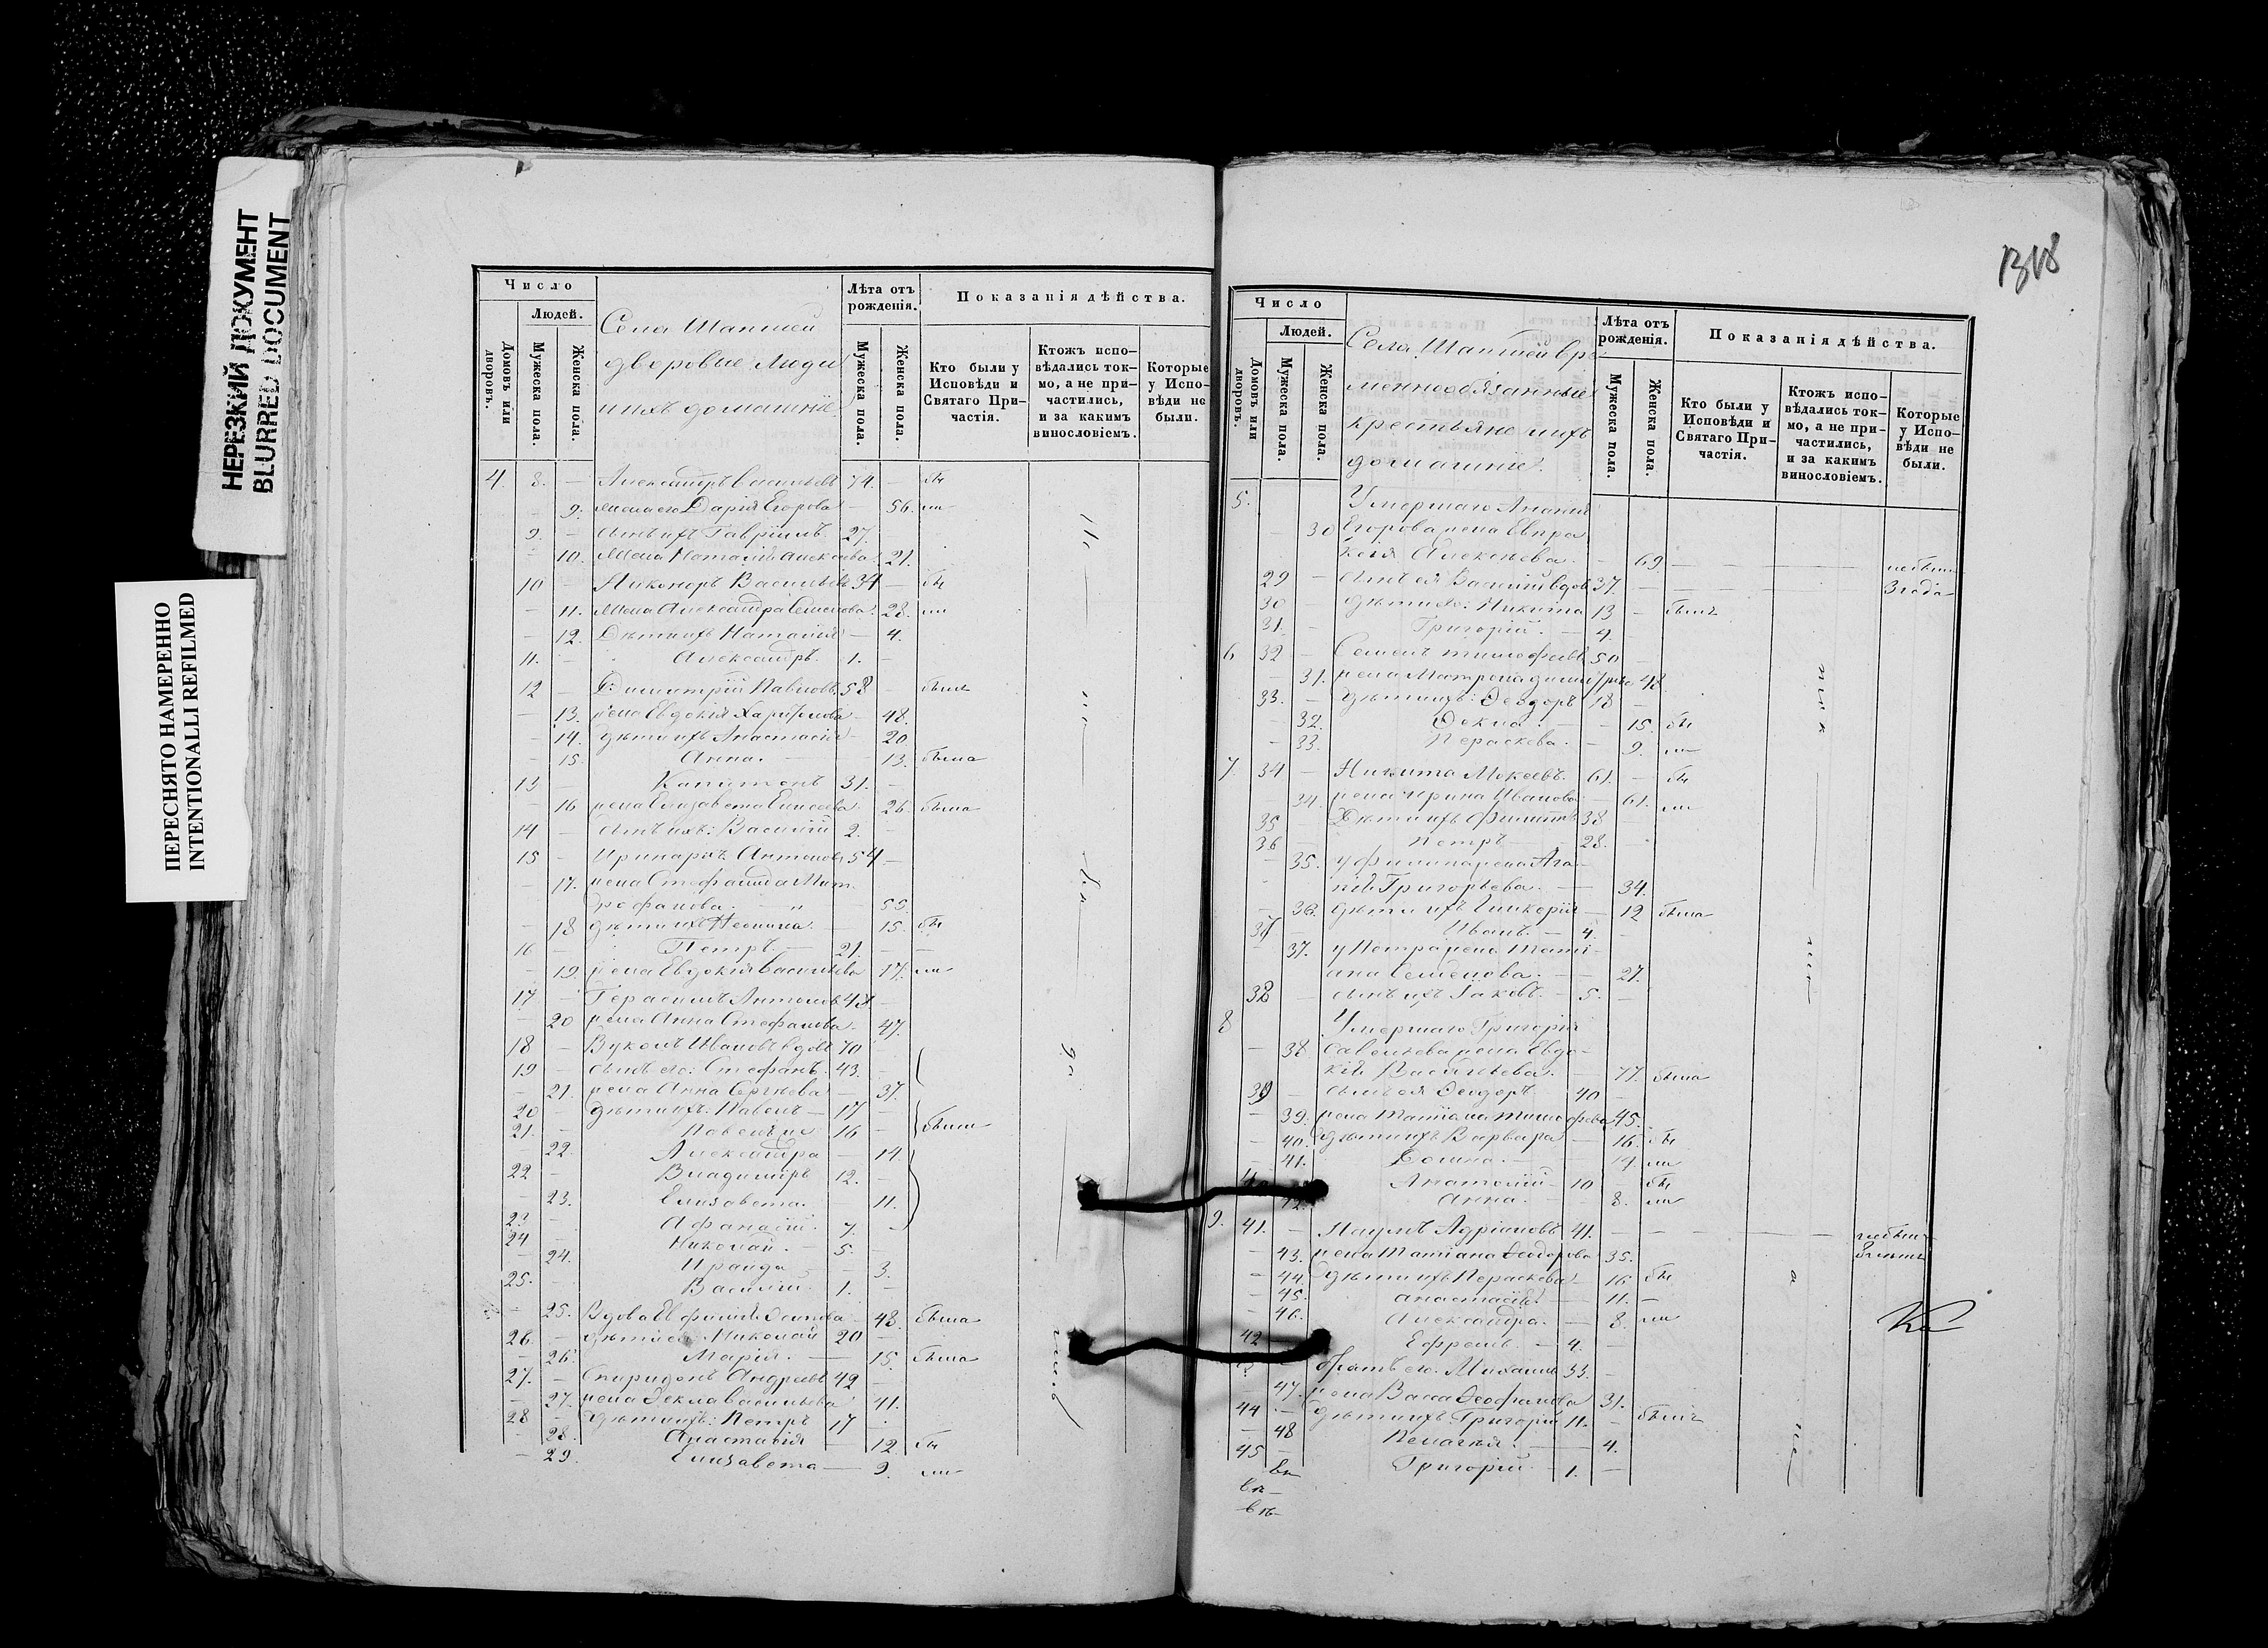 НЕРЕЗКИЙ ДОКУМЕНТ
BLURRED DOCUMENT
ПЕРЕСНЯТО НАМЕРЕННО
INTENTIONALLI REFILMED
Число
Людей.
Домовъ или дворовъ.
Мужеска пола.
Женска пола.
Села
дворовые люди
и ихъ домашніе
Лѣта отъ рожденія.
Мужеска пола.
Женска пола.
Показанія дѣйства.
Кто были у Исповѣди и Святаго При-частія.
Ктожъ испо-вѣдались ток-мо, а не при-частились, и за какимъ винословіемъ.
Которые у Испо-вѣди не были.
4. 8. — Александръ Васильевъ 74 — бы
— 9. жена его Дарія Егорова — 56. ли
9. — сынъ ихъ Гавріилъ 27.
— 10. жена Наталія Алексѣева 21.
10 — Никоноръ Васильевъ 34 — бы
— 11. жена Александра Семенова 28. ли
— 12. Дѣти ихъ Наталія — 4.
11. — Александръ. 1. —
12 — Димитрій Павловъ 58 — былъ
— 13. жена Евдокія — 48.
— 14. дѣти ихъ Анастасія — 20.
— 15. Анна. — 13. была
13 — Капитонъ 31. —
— 16 жена Елизавета Елисеева 26. была
14 — сынъ ихъ: Василій 2. —
15 — Иринархъ Антоновъ 54 —
— 17. жена Стефанида Мит-
рофанова. — 55.
— 18 дѣти ихъ Неонила — 15. бы
16 — Петръ — 21. —
— 19. жена Евдокія Васильева 17. ли
17 — Герасимъ Антоновъ —
— 20 жена Анна Стефанова — 47.
18 — Вуколъ Ивановъ вдовъ 70
19 — сынъ его: Стефанъ 43. —
— 21. жена Анна Сергѣева — 37.
20 — дѣти ихъ: Павелъ — 17 — были
21. — Павелъ же 16 —
— 22. Александра — 14.
22 — Владиміръ 12. —
— 23. Елизавета. 11.
23 — Афанасій. 7. —
24 — Николай. — 5. —
— 24. Ираида — 3.
25. — Василій. 1. —
— 25. Вдова Евфимія Осипова 43. была
26 — Николай 20 —
— 26. Марія. — 15. была
27. — Спиридонъ Андреевъ 42 —
— 27. жена Ѳекла Васильева 41.
28 — дѣти ихъ: Петръ 17 —
— 28. Анастасія — 12 бы
— 29. Елизавета — 9. ли
Число
Людей.
Домовъ или дворовъ.
Мужеска пола.
Женска пола.
Села Вре-
меннообязанные
крестьяне и ихъ
домашніе.
Лѣта отъ рожденія.
Мужеска пола.
Женска пола.
Показанія дѣйства.
Кто были у Исповѣди и Святаго При-частія.
Ктожъ испо-вѣдались ток-мо, а не при-частились, и за какимъ винословіемъ.
Которые у Испо-вѣди не были.
5. Умершаго Ананія
— 30 Егорова жена Евпра-
ксія Алексѣева. — 69.
29 — сынъ ея Василій вдовъ 37. — 3 года
30 дѣти его: Никита 13 — былъ
31. — Григорій. — 4. —
6 32 — Семенъ Тимофеевъ 50 —
— 31. жена Матрона Димитріева 48.
33. — дѣти ихъ: Ѳеодоръ 18 —
— 32. Ѳекла. — 15. бы
— 33. Параскева. — 9. ли
7. 34 — Никита Мокеевъ. 61. — бы
— 34. жена Ирина Иванова — 61. ли
35 Дѣти ихъ Филиппъ 38 —
36 Петръ — 28. —
— 35. у Филиппа жена Ага-
пія Григорьева. — 34.
— 36. дѣти ихъ Гликерія — 12 была
37 Иванъ. — 4. —
— 37. у Петра жена Тати-
ана Семенова. — 27.
38 — сынъ ихъ Іаковъ. — 5. —
8 Умершаго Григорія
— 38. Савельева жена Евдо-
кія Васильева. — 77. была
39 — сынъ ея Ѳеодоръ 40 —
— 39. жена Татіана Тимофеева 45.
— 40. дѣти ихъ Варвара — 16. бы
— 41. — 14. ли
Анатолій — 10 — бы
42. Анна. — 8. ли
9. 41. — Наумъ Адріановъ 41. —
— 43. жена Татіана Ѳеодорова 35.
— 44. дѣти ихъ Параскева — 16 бы
— 45. Анастасія. — 11. —
— 46. Александра. — 8. ли
42 — Ефремъ. — 4. —
братъ его: Михаилъ 33. —
— 47. жена Васса Ѳеофанова 31.
44 — дѣти ихъ: Григорій 11. — былъ
— 48 Пелагія. — 4.
45 — Григорій. — 1. —